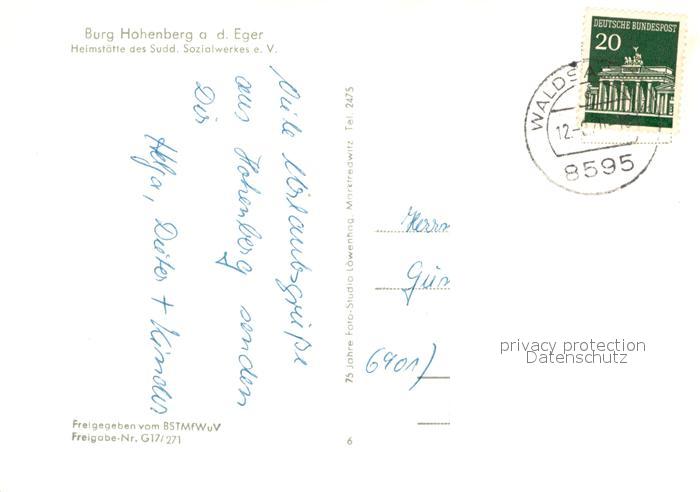 Burg Hohenberg a. d. Eger
Heimstätte des Sudd. Sozialwerkes e. V.
Viele Urlaubsgrüße
aus Hohenberg senden
Dir
Helga, Dieter + Kinder
Freigegeben vom BSTMfWuV
Freigabe-Nr. G17/271
75 Jahre Foto-Studio Löwenhag, Marktredwitz, Tel. 2475
6
DEUTSCHE BUNDESPOST
20
WALDSA
12.
8595
Herrn
Gün
6901)
privacy protection
Datenschutz